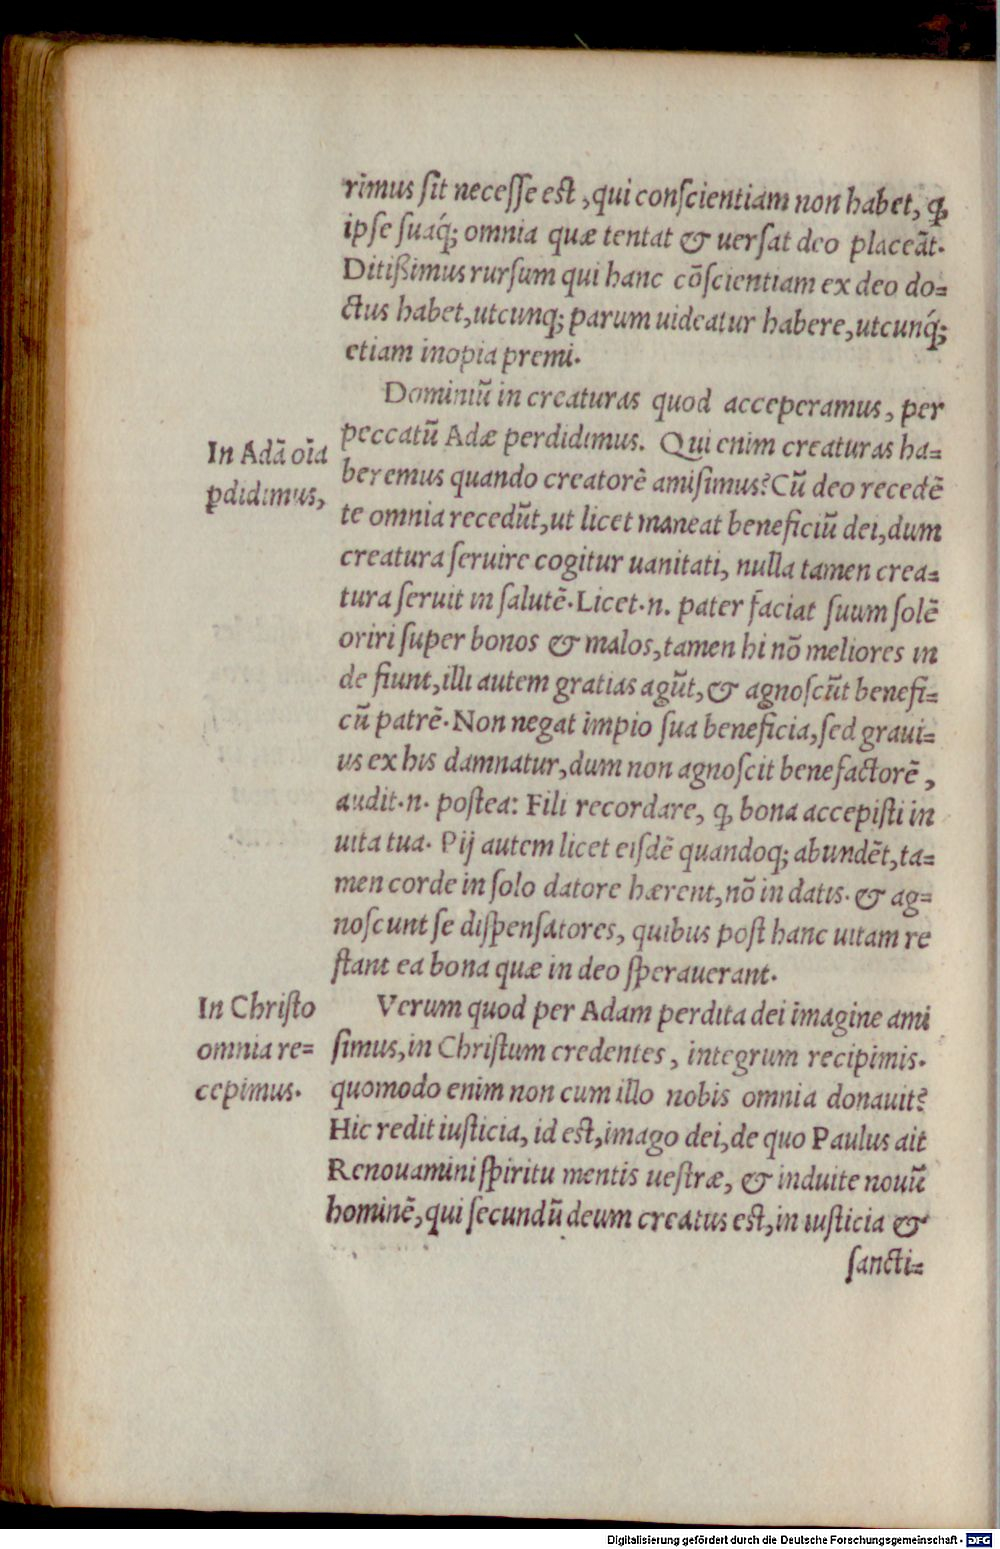 rimus ſit neceſſe eſt, qui conſcientiam non habet, ꝙ
ipſe ſuaq́; omnia quæ tentat & uerſat deo placeāt.
Ditißimus rurſum qui hanc cōſcientiam ex deo do=
ctus habet, utcunq; parum uideatur habere, utcunq́;
etiam inopia premi.
Dominiū in creaturas quod acceperamus, per
peccatū Adæ perdidimus. Qui enim creaturas ha=
beremus quando creatorē amiſimus? Cū deo recedē
te omnia recedūt, ut licet maneat beneficiū dei, dum
creatura ſeruire cogitur uanitati, nulla tamen crea=
tura ſeruit in ſalutē. Licet .n. pater faciat ſuum ſolē
oriri ſuper bonos & malos, tamen hi nō meliores in
de fiunt, illi autem gratias agūt, & agnoſcūt benefi=
cū patrē. Non negat impio ſua beneficia, ſed graui=
us ex his damnatur, dum non agnoſcit benefactorē,
audit .n. poſtea: Fili recordare, ꝙ bona accepiſti in
uita tua. Pij autem licet eiſdē quandoq; abundēt, ta=
men corde in ſolo datore hærent, nō in datis. & ag=
noſcunt ſe diſpenſatores, quibus poſt hanc uitam re
ſtant ea bona quæ in deo ſperauerant.
Verum quod per Adam perdita dei imagine ami
ſimus, in Chriſtum credentes, integrum recipimis.
quomodo enim non cum illo nobis omnia donauit?
Hic redit iuſticia, id eſt, imago dei, de quo Paulus ait
Renouamini ſpiritu mentis ueſtræ, & induite nouū
hominē, qui ſecundū deum creatus eſt, in iuſticia &
ſancti=
In Adā oīa
ꝑdidimus,
In Chriſto
omnia re=
cepimus.
Digitalisierung gefördert durch die Deutsche Forschungsgemeinschaft - DFG